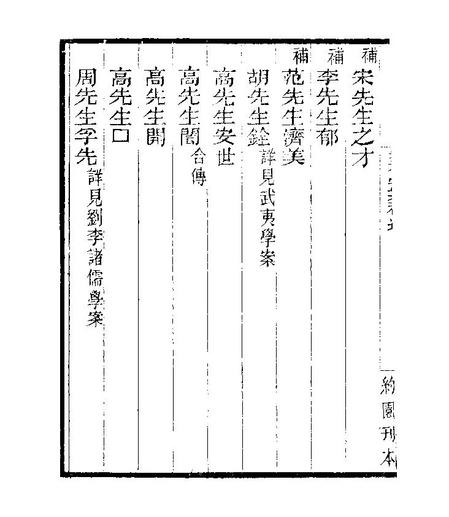 補 宋先生之才
補 李先生郁
補 范先生濟美
胡先生銓 詳見武夷學案
高先生安世
高先生閌 合傳
高先生閱
高先生口
周先生孚先 詳見劉李諸儒學案
約園刊本